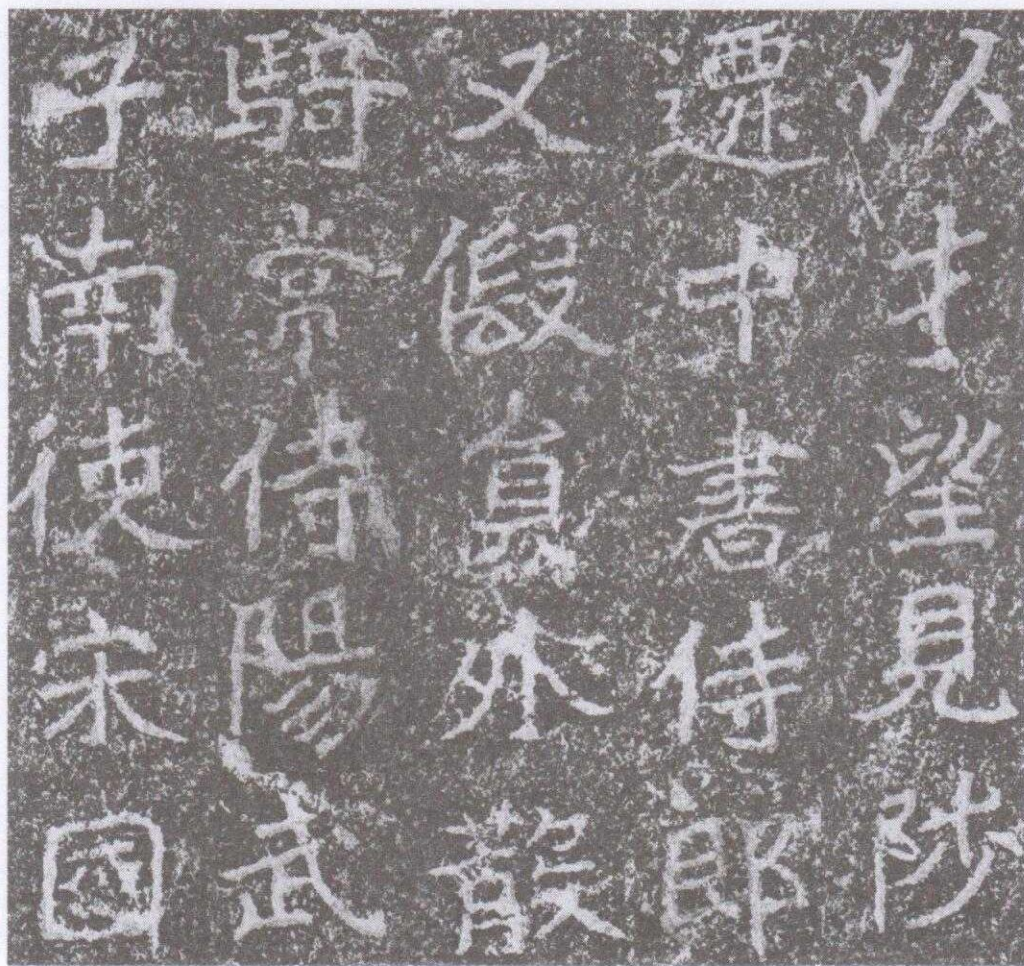 以才望見陟
遷中書侍郎
又假員外散
騎常侍陽武
子南使宋國